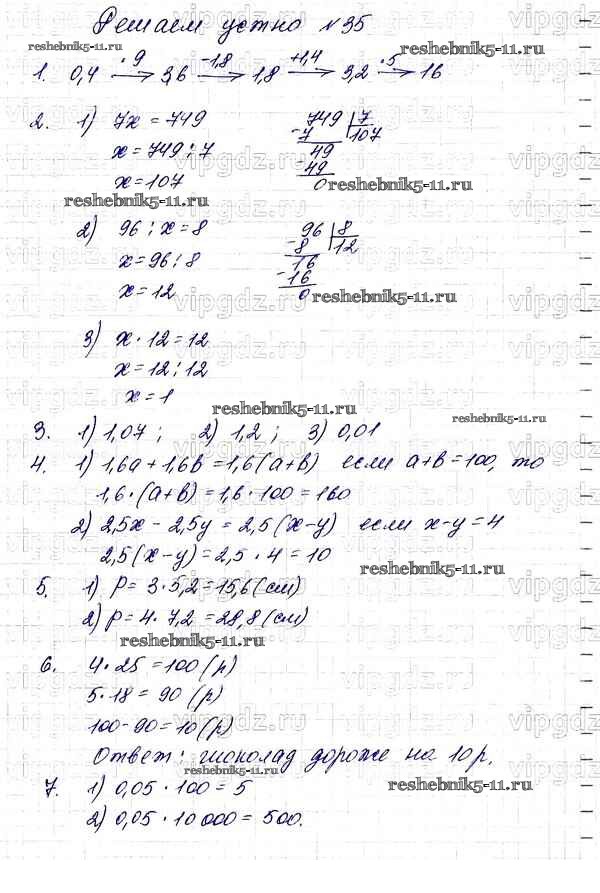 Решаем устно №35
reshebnik5-11.ru reshebnik5-11.ru
1. 0,4 —·9→ 3,6 —-1,8→ 1,8 —+1,4→ 3,2 —·5→ 16
2. 1) 7x = 749 749 | 7
x = 749 : 7 - 7 107
49
x = 107 - 49
0 reshebnik5-11.ru
reshebnik5-11.ru
2) 96 : x = 8 96 | 8
x = 96 : 8 - 8 12
16
x = 12 - 16
0 reshebnik5-11.ru
3) x · 12 = 12
x = 12 : 12
x = 1
reshebnik5-11.ru reshebnik5-11.ru
3. 1) 1,07 ; 2) 1,2 ; 3) 0,01
4. 1) 1,6a + 1,6b = 1,6(a+b) если a+b = 100, то
1,6 · (a+b) = 1,6 · 100 = 160
2) 2,5x - 2,5y = 2,5(x-y) если x-y = 4
2,5(x-y) = 2,5 · 4 = 10
reshebnik5-11.ru
5. 1) P = 3 · 5,2 = 15,6 (см)
2) P = 4 · 7,2 = 28,8 (см)
reshebnik5-11.ru
6. 4 · 25 = 100 (р)
5 · 18 = 90 (р)
100 - 90 = 10 (р)
Ответ: шоколад дороже на 10 р.
reshebnik5-11.ru
7. 1) 0,05 · 100 = 5 reshebnik5-11.ru
2) 0,05 · 10 000 = 500.
vipgdz.ru